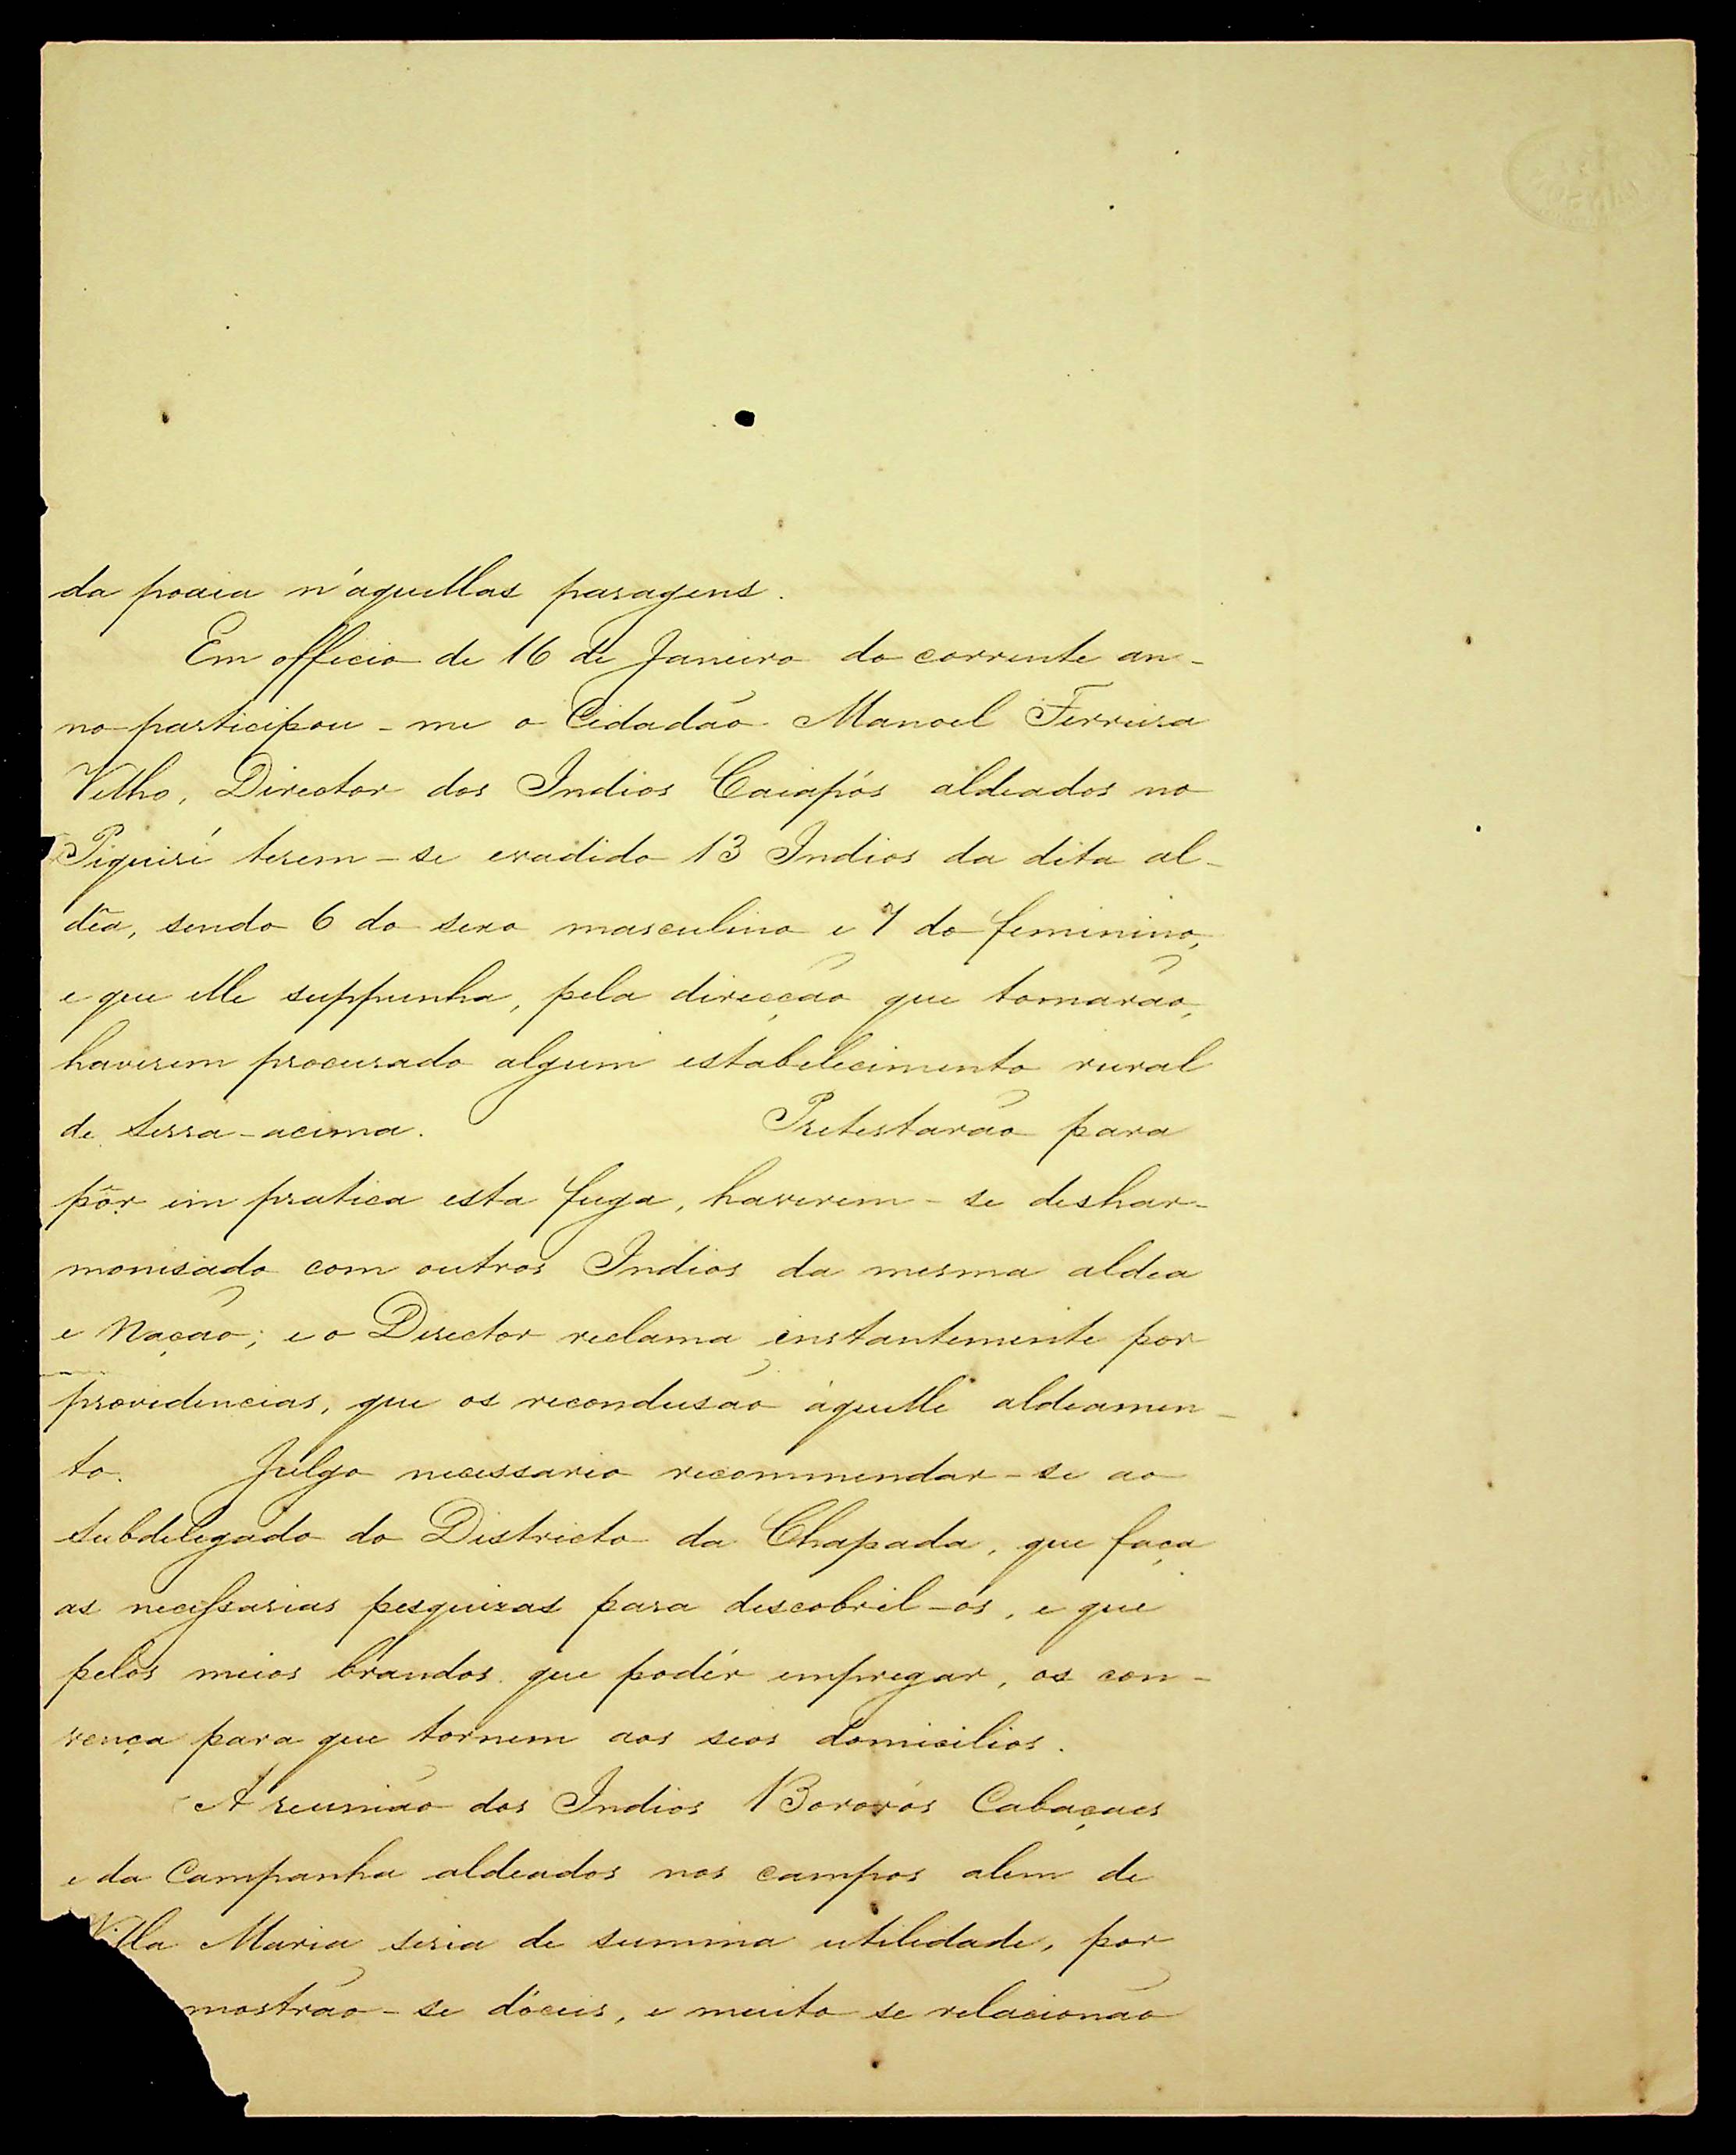 da poaia n'aquellas paragens.
Em officio de 16 de Janeiro do corrente an-
no participou-me o Cidadão Manoel Ferreira
Velho, Director dos Indios Caiapós aldeados no
Piquirí terem-se evadido 13 Indios da dita al-
dêa, sendo 6 do sexo masculino e 7 do feminino,
e que elle suppunha, pela direcção que tomarão,
haverem procurado algum estabelecimento rural
de serra-acima. Pretestarão para
pôr em pratica esta fuga, haverem-se deshar-
monisado com outros Indios da mesma aldea
e Nação; e o Director reclama instantemente por
providencias, que os recondusão áquelle aldeamen-
to. Julgo necessario recommendar-se ao
Subdelegado do Districto da Chapada, que faça
as necessarias pesquizas para descobril-os, e que
pelos meios brandos que podér empregar, os con-
vença para que tornem aos seos domicilios.
A reunião dos Indios Bororós Cabaçaes
e da Campanha aldeados nos campos alem de
Villa Maria seria de summa utilidade, por
mostrão-se dóceis, e muito se relacionão